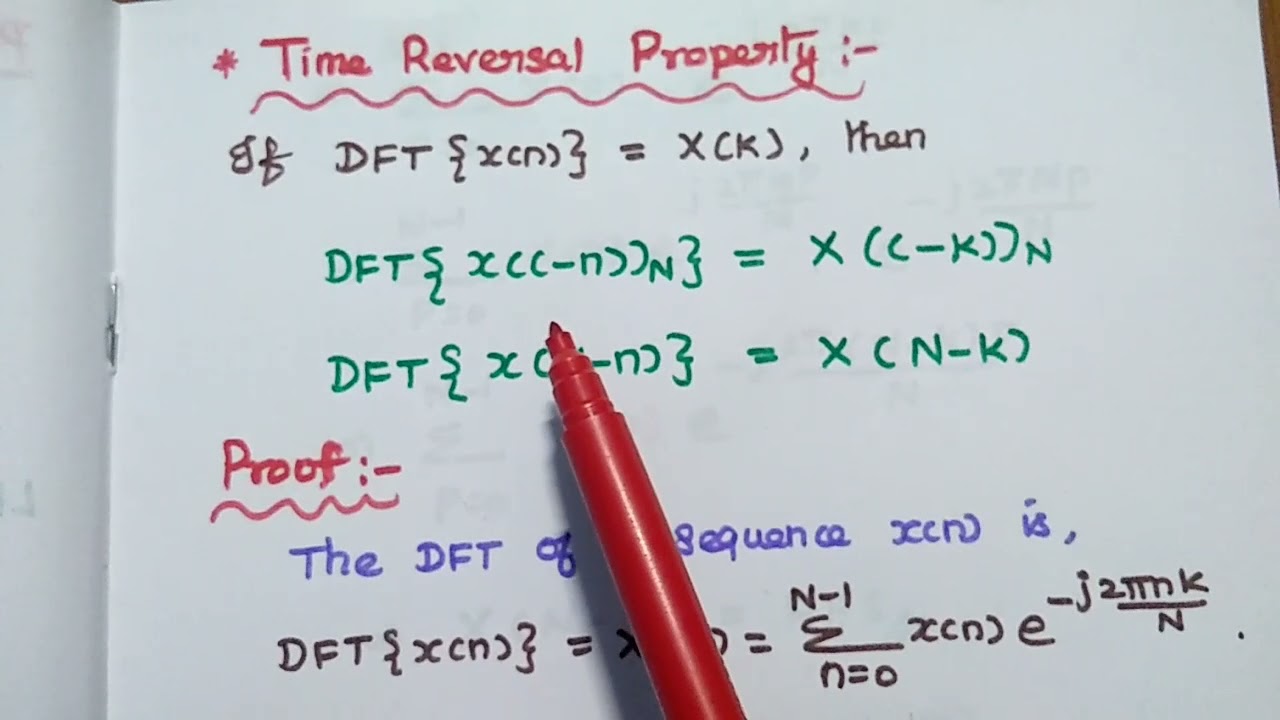 * Time Reversal Property :-
If DFT {x(n)} = X(K), then
DFT{ x((-n))N} = X ((-K))N
DFT{ x( -n)} = X (N-K)
Proof :-
The DFT of sequence x(n) is,
DFT{x(n)} = = N-1 Σ n=0 x(n) e -j2πnk/N .